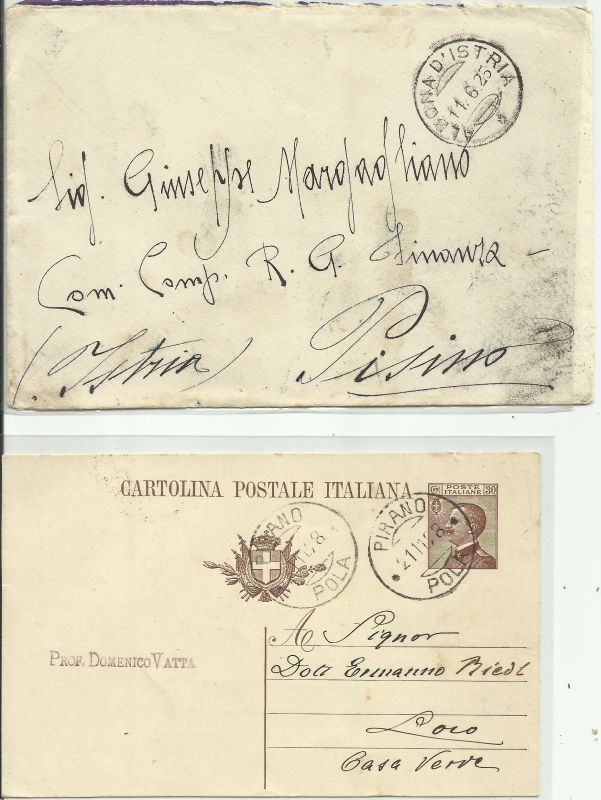 ALBONA D'ISTRIA
11.6.25
Sig. Giuseppe Margagliano
Com. Comp. R. G. Finanza -
(Istria) Pisino
CARTOLINA POSTALE ITALIANA
POSTE ITALIANE 30
PIRANO
POLA
PIRANO
POLA
A Signor
PROF. DOMENICO VATTA
Dott Ermanno Riedl
Loco
Casa Verde